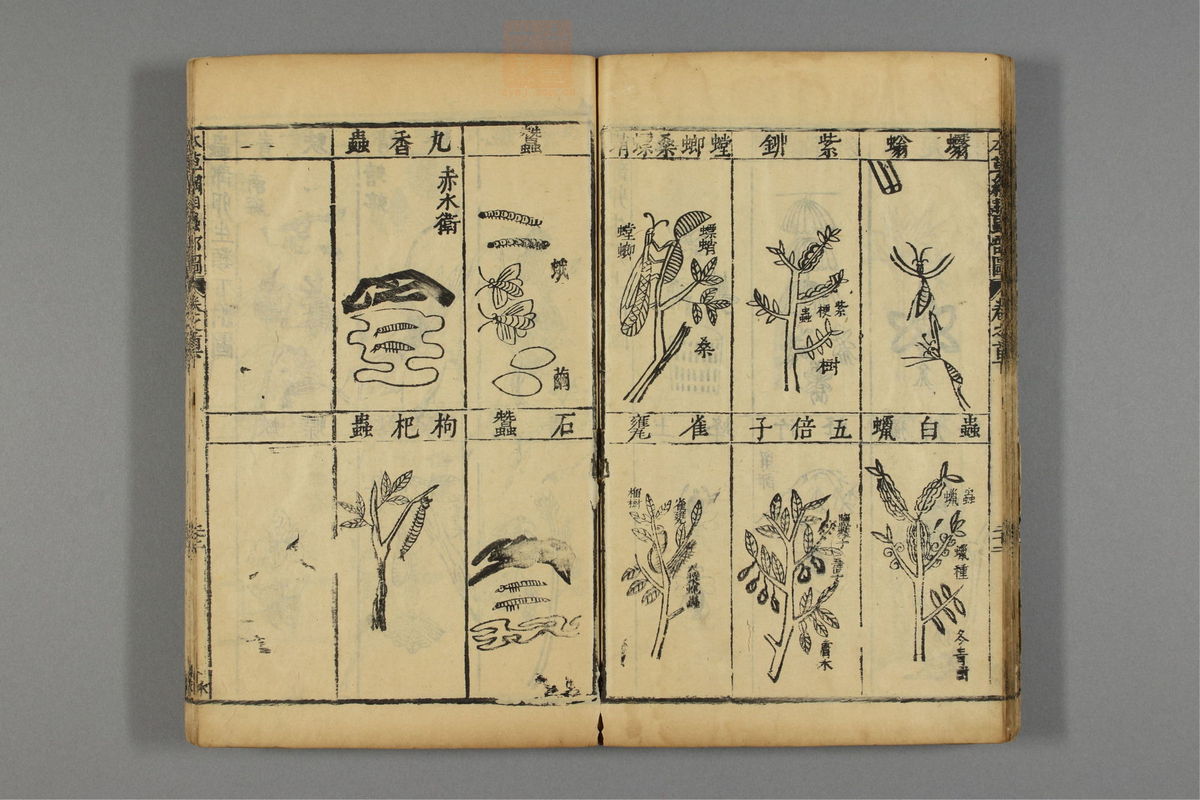 蠮螉
紫鉚
紫梗
蟲
樹
螳螂桑螵蛸
螵蛸
螳螂
桑
蟲白蠟
蟲蠟
蠟種
冬青樹
五倍子
膚木
雀甕
榴樹
蠶
蛾
繭
九香蟲
赤水衛
石蠶
枸杞蟲